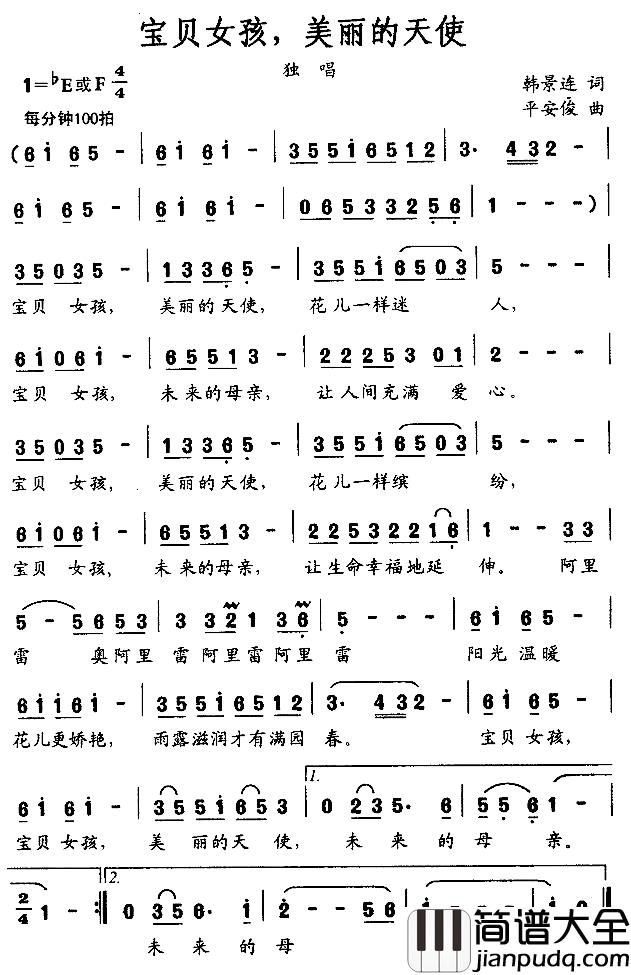 宝贝女孩，美丽的天使
独 唱
1=♭E或F 4/4
韩景连 词
每分钟100拍
平安俊 曲
(6i 65 - | 6i 6i - | 355i6512 | 3· 432 - |
6i 65 - | 6i 6i - | 06533256 | 1 - - ) |
35035 - | 13365 - | 355i6503 | 5 - - - |
宝贝 女孩， 美丽的天使， 花儿一样迷 人，
6i06i - | 65513 - | 22253 01 | 2 - - - |
宝贝 女孩， 未来的母亲， 让人间充满 爱 心。
35035 - | 13365 - | 355i6503 | 5 - - - |
宝贝 女孩， 美丽的天使， 花儿一样缤 纷，
6i06i - | 65513 - | 22532216 | 1 - - 33 |
宝贝 女孩， 未来的母亲， 让生命幸福地延 伸。 阿里
5 - 5653 | 3 321 36 | 5 - - - | 6i65 - |
雷 奥阿里 雷阿里雷阿里 雷 阳光温暖
6ii6i - | 355i6512 | 3· 432 - | 6i65 - |
花儿更娇艳， 雨露滋润才有满园 春。 宝贝女孩，
1.
6i 6i - | 355i653 | 0 235· 6 | 556 i - |
宝贝女孩， 美 丽的天 使， 未 来 的 母 亲。
2.
2/4 1 - :| 0 356· i | 2 - - 56 | i - - - | i 0 0 0 ‖
未 来 的 母
简谱大全
jianpudq.com